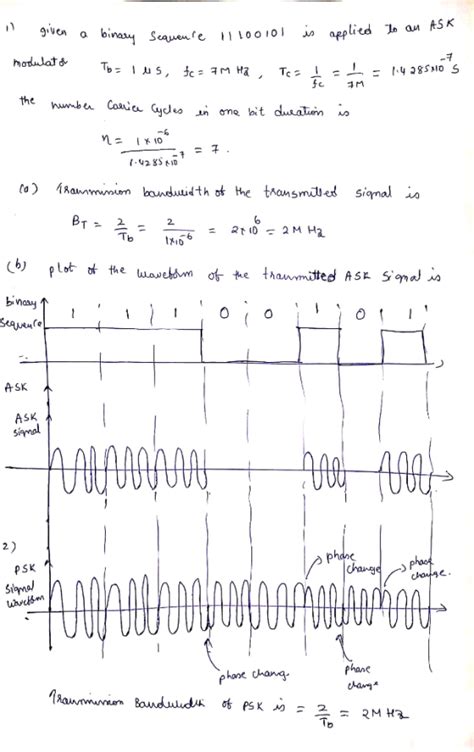 1) given a binary Sequence 11100101 is applied to an ASK
modulator Tb = 1 μs, fc = 7MHz, Tc = 1/fc = 1/7M = 1.4285×10^-7 S
the number Carier Cycles in one bit duration is
n = 1×10^-6 / 1.4285×10^-7 = 7.
(a) Transmission bandwidth of the transmitted signal is
BT = 2/Tb = 2/1×10^-6 = 2×10^6 = 2MHz
(b) plot of the waveform of the transmitted ASK Signal is
binary Sequence
1 1 1 0 0 1 0 1
ASK
ASK signal
2)
PSK Signal waveform
phase change
phase change.
phase chang.
phase change
Transmission Bandwidth of PSK is = 2/Tb = 2MHz